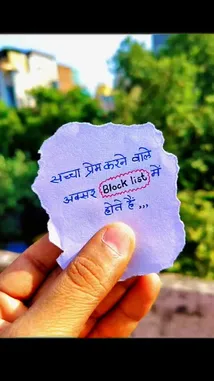 सच्चा प्रेम करने वाले
अक्सर Block list में
होते हैं ,,,